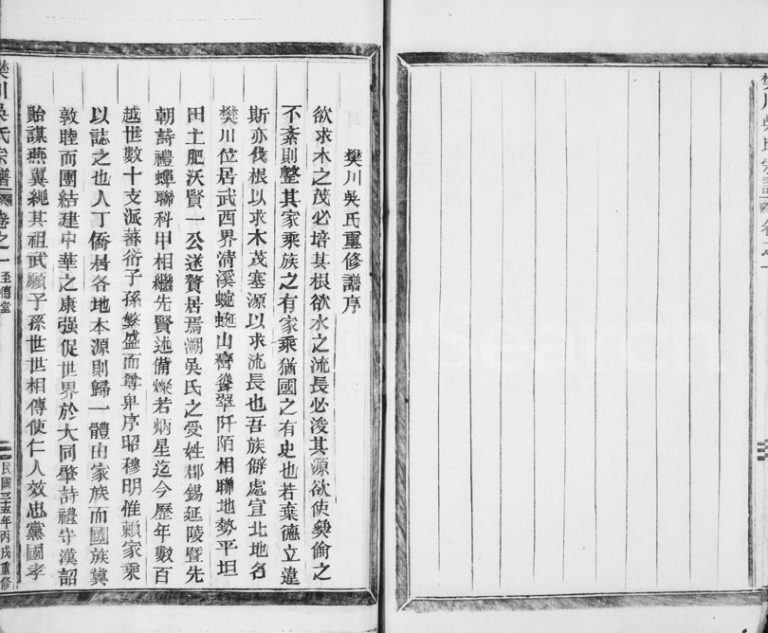 樊川吳氏宗譜
樊川吳氏重修譜序
欲求木之茂必培其根欲水之流長必浚其源欲使彝倫之
不紊則整其家乘族之有家乘猶國之有史也若棄德立違
斯亦伐根以求木茂塞源以求流長也吾族僻處宜北地名
樊川位居武西界清溪蜿蜒山巒聳翠阡陌相聯地勢平坦
田土肥沃賢一公迷贅居焉溯吳氏之受姓郡錫延陵暨先
朝詩禮蟬聯科甲相繼先賢述備燦若炳星迄今歷年數百
越世數十支派蕃衍子孫繁盛而尊卑序昭穆明惟賴家乘
以誌之也人丁僑居各地本源則歸一體由家族而國族冀
敦睦而團結建中華之康强促世界於大同肇詩禮守漢詔
貽謀燕翼繩其祖武願子孫世世相傳使仁人效忠黨國孝
樊川吳氏宗譜 卷之一 至德堂 民國三十五年丙戌重修